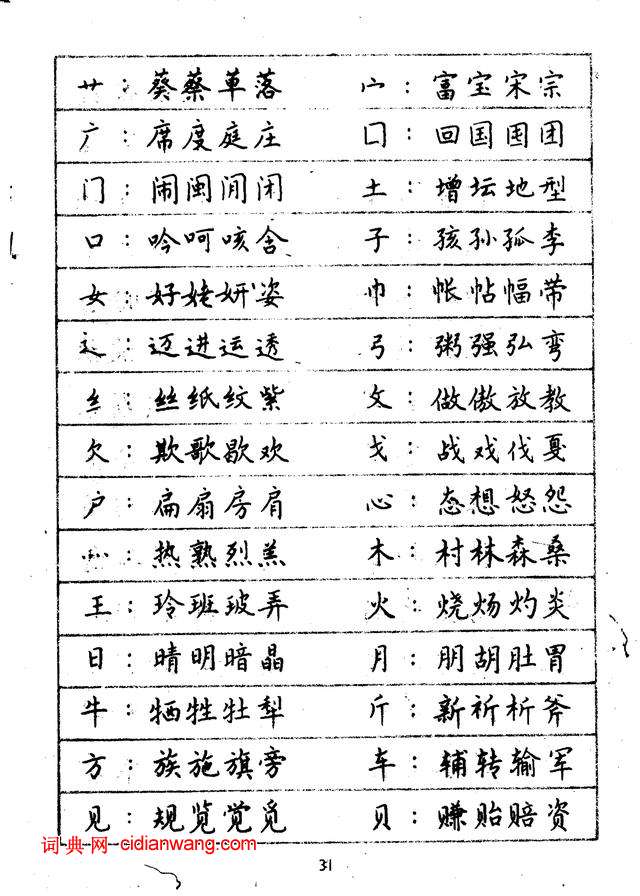 艹：葵蔡草落 宀：富宝宋宗
广：席度庭庄 囗：回国囤团
门：闹闽间闭 土：增坛地型
口：吟呵咳舍 子：孩孙孤李
女：好姥妍姿 巾：帐帖幅带
辶：迈进运透 弓：粥强弘弯
纟：丝纸纹紫 攵：做傲放教
欠：欺歌歇欢 戈：战戏伐戛
户：扁扇房肩 心：态想怒怨
灬：热熟烈羔 木：村林森桑
王：玲班玻弄 火：烧炀灼炎
日：晴明暗晶 月：朋胡肚胃
牛：牺牲牡犁 斤：新祈析斧
方：族施旗旁 车：辅转输军
见：规览觉觅 贝：赚贻赔资
词·典·网·cidianwang.com
31